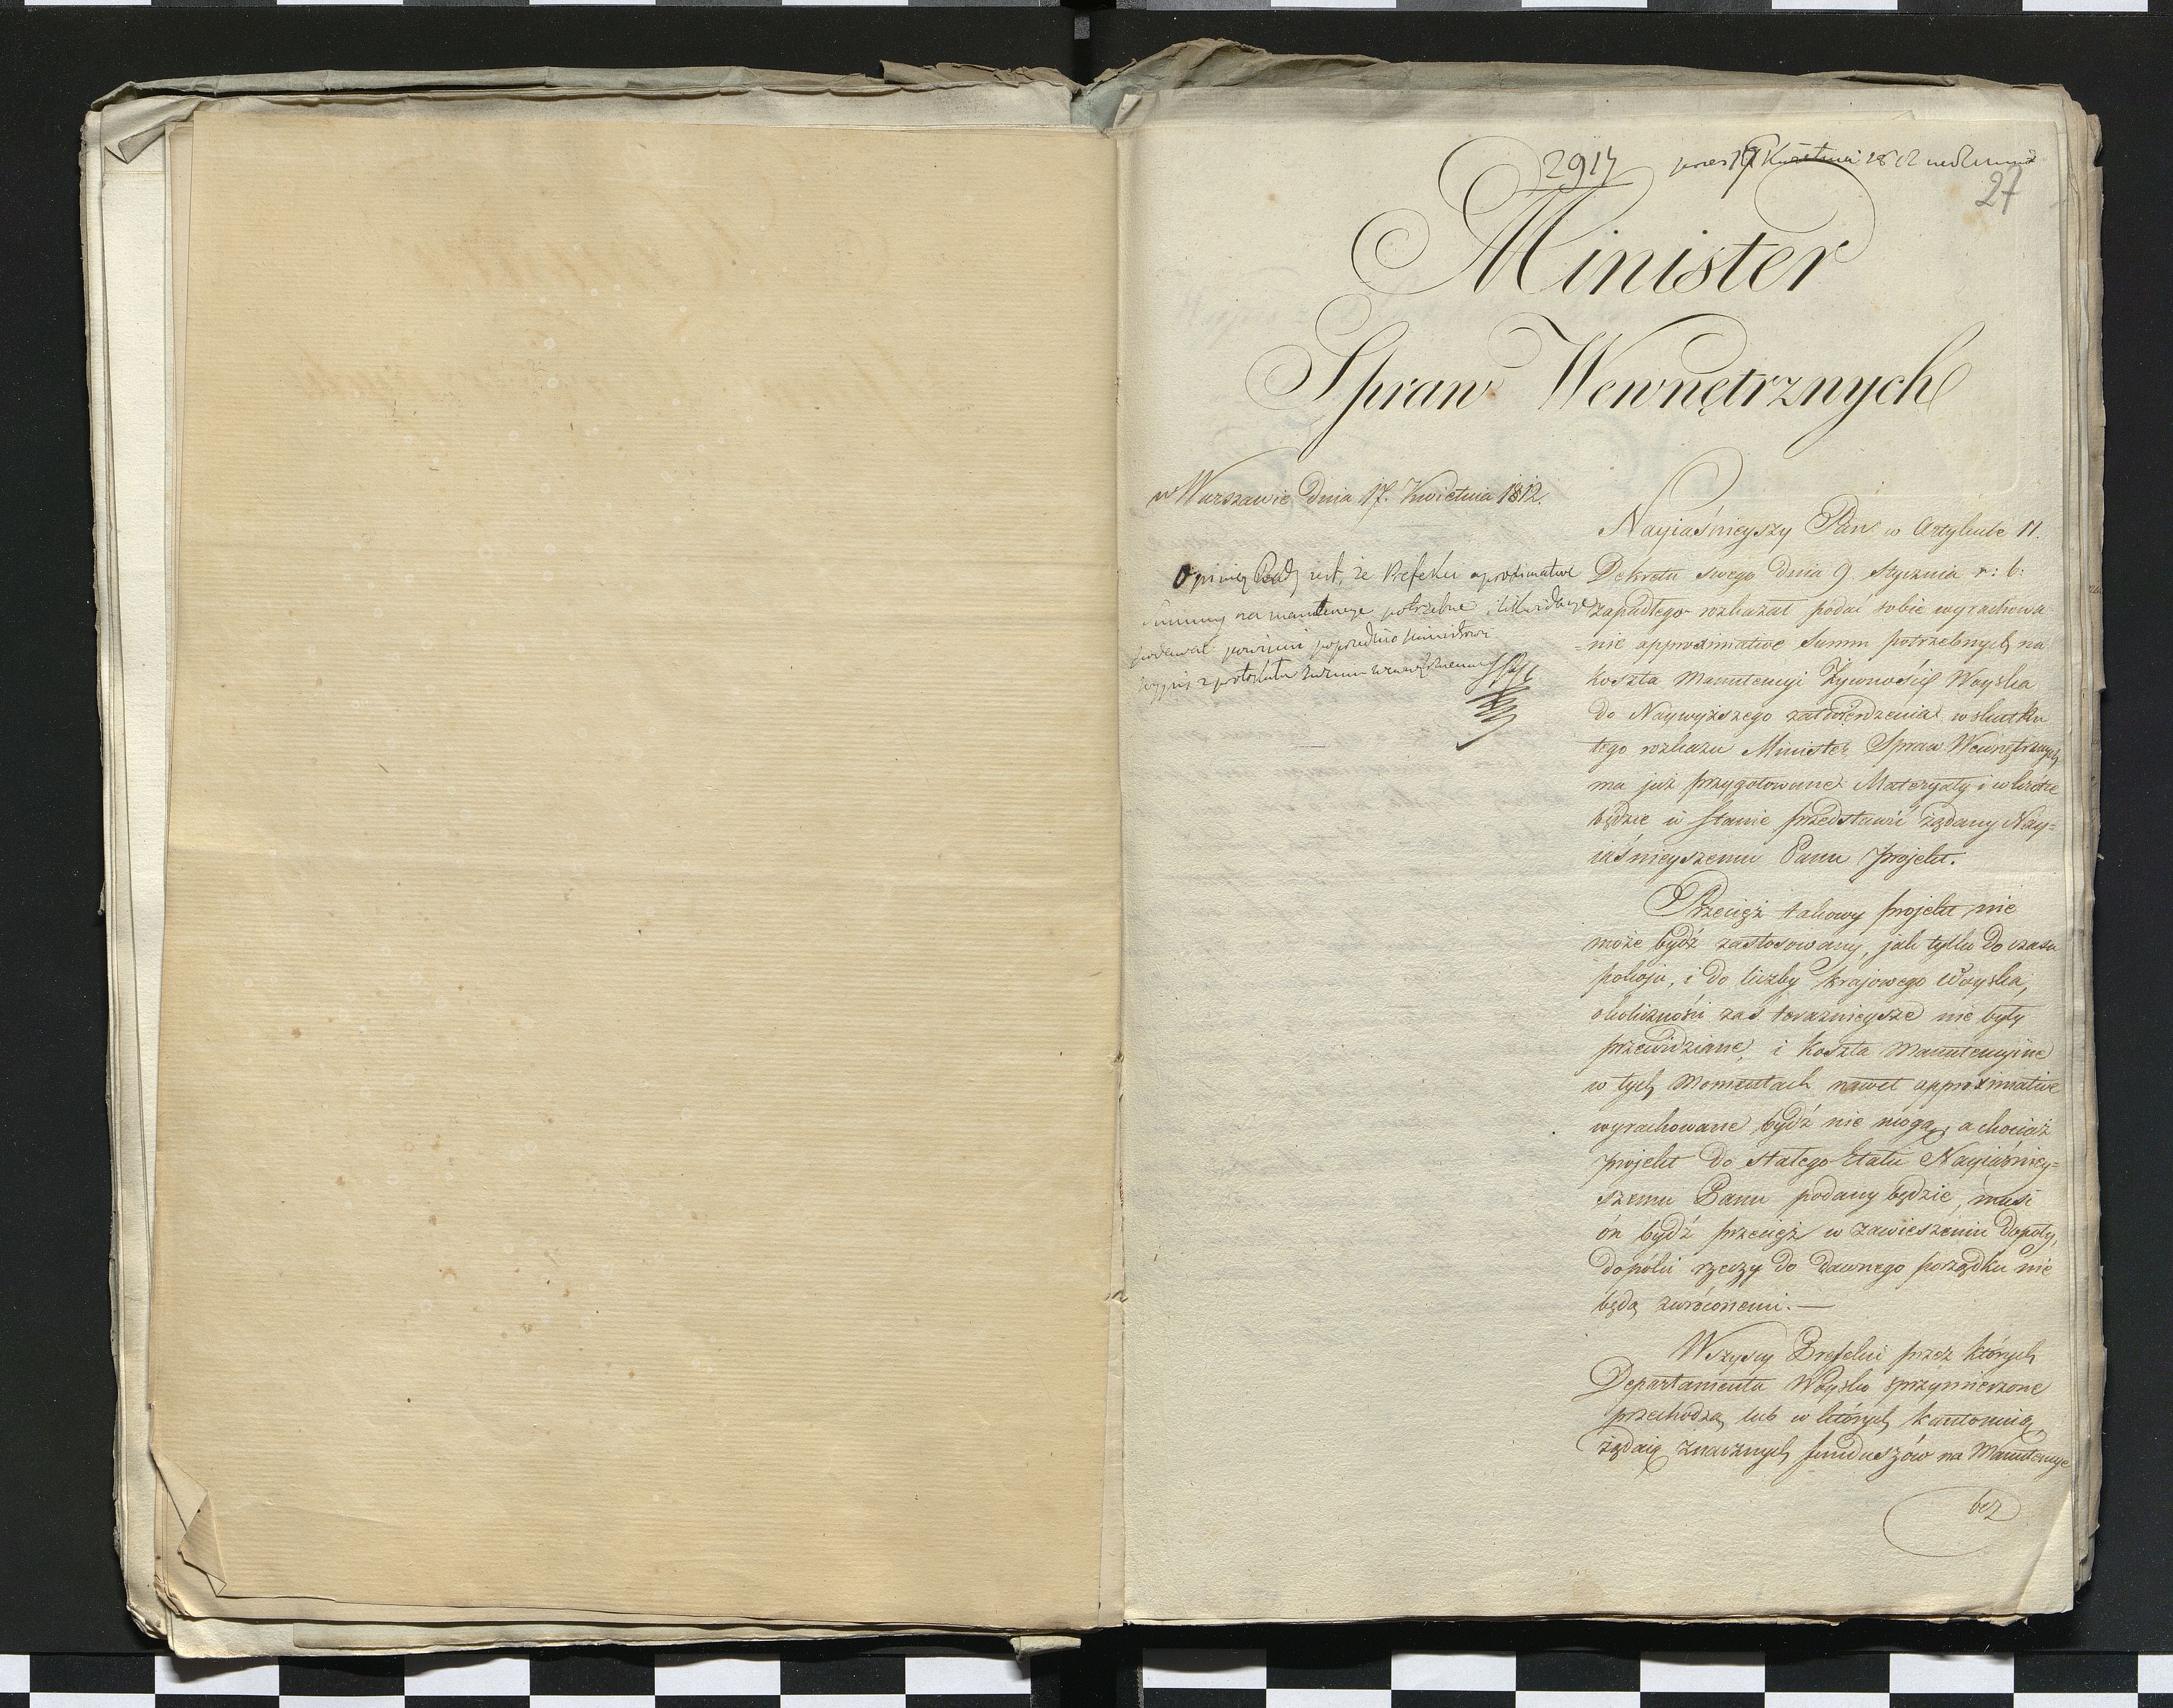 2914
27
Minister
Spraw Wewnętrznych
w Warszawie Dnia 17. Kwietnia 1812.
Opinią Rady jest, że Prefekci aproximative
Summy na manutencye potrzebne
podawać powinni poprzednio Ministrowi
Nayiaśnieyszy Pan w Artykule 11.
Dekretu swego Dnia 9 Stycznia r: b:
zapadłego rozkazał podać sobie wyrachowa
=nie approximative Summ potrzebnych na
koszta Manutencyi Żywności Woyska
do Naywyższego zatwierdzenia, w skutku
tego rozkazu Minister Spraw Wewnętrznych
ma już przygotowane Materyały i wkrótce
będzie w stanie przedstawić żądany Nay=
iaśnieyszemu Panu Projekt.
Przecięż takowy projekt nie
może bydź zastosowany, jak tylko do czasu
pokoju, i do liczby krajowego Woyska,
okoliczności zaś teraznieysze nie były
przewidziane, i koszta Manutencyine
w tych Momentach nawet approximative
wyrachowane bydź nie mogą, a chociaż
projekt do stałego Etatu Nayiaśniey=
szemu Panu podany będzie, musi
ón bydź przecięż w zawieszeniu dopoty,
dopóki rzeczy do dawnego porządku nie
będą zwróconemi. —
Wszyscy Prefekci przez których
Departamenta Woysko sprzymierzone
przechodzą, lub w których kantonuią,
żądaią znacznych funduszów na Manutencye
bez